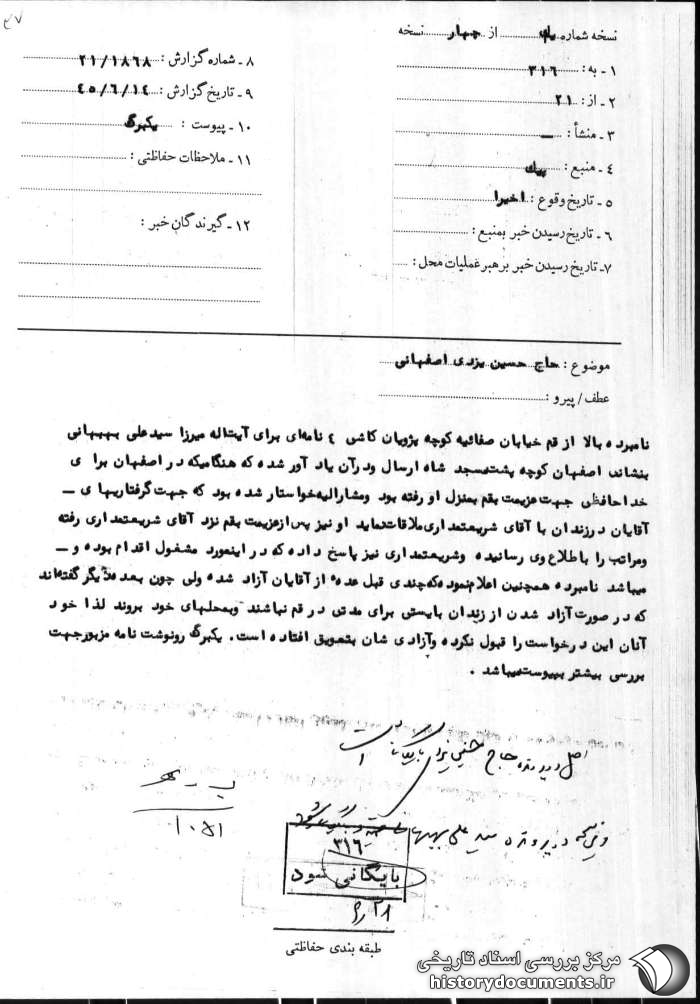 نسخه شماره یک از چهار نسخه
۱ - به : ۳۱۶
۲ - از : ۲۱
۳ - منشأ : ــ
۴ - منبع : پیک
۵ - تاریخ وقوع : اخیرا
۶ - تاریخ رسیدن خبر بمنبع :
۷ - تاریخ رسیدن خبر برهبر عملیات محل :
۸ - شماره گزارش : ۲۱/۱۸۶۸
۹ - تاریخ گزارش : ۴۵/۶/۱۴
۱۰ - پیوست : یکبرگ
۱۱ - ملاحظات حفاظتی :
۱۲ - گیرندگان خبر :
موضوع : حاج حسین یزدی اصفهانی
عطف / پیرو :
نامبرده بالا از قم خیابان صفائیه کوچه پژویان کاشی ۴ نامه‌ای برای آیت‌اله میرزا سید علی بهبهانی
بنشانه اصفهان کوچه پشت مسجد شاه ارسال ودرآن یاد آور شده که هنگامیکه در اصفهان برا ی
خداحافظی جهت عزیمت بقم بمنزل او رفته بود ومشارالیه خواستار شده بود که جهت گرفتاریها ی ــ
آقایان در زندان با آقای شریعتمداری ملاقات نماید او نیز پس از عزیمت بقم نزد آقای شریعتمداری رفته
ومراتب را باطلاع وی رسانیده وشریعتمداری نیز پاسخ داده که در اینمورد مشغول اقدام بوده و ــ
میباشد نامبرده همچنین اعلام نموده که چندی قبل عده از آقایان آزاد شده ولی چون بعده دیگر گفته‌اند
که در صورت آزاد شدن از زندان بایستی برای مدتی در قم نباشند وبمحلهای خود بروند لذا خود
آنان این درخواست را قبول نکرده وآزادی شان بتعویق افتاده است . یکبرگ رونوشت نامه مزبور جهت
بررسی بیشتر بپیوست میباشد .
اصل در پرونده حاج حسین یزدی بایگانی است
در پرونده سید علی بهبهانی
۱۰۵۱
۳۱۶
بایگانی شود
۲۸
طبقه بندی حفاظتی
مرکز بررسی اسناد تاریخی
historydocuments.ir